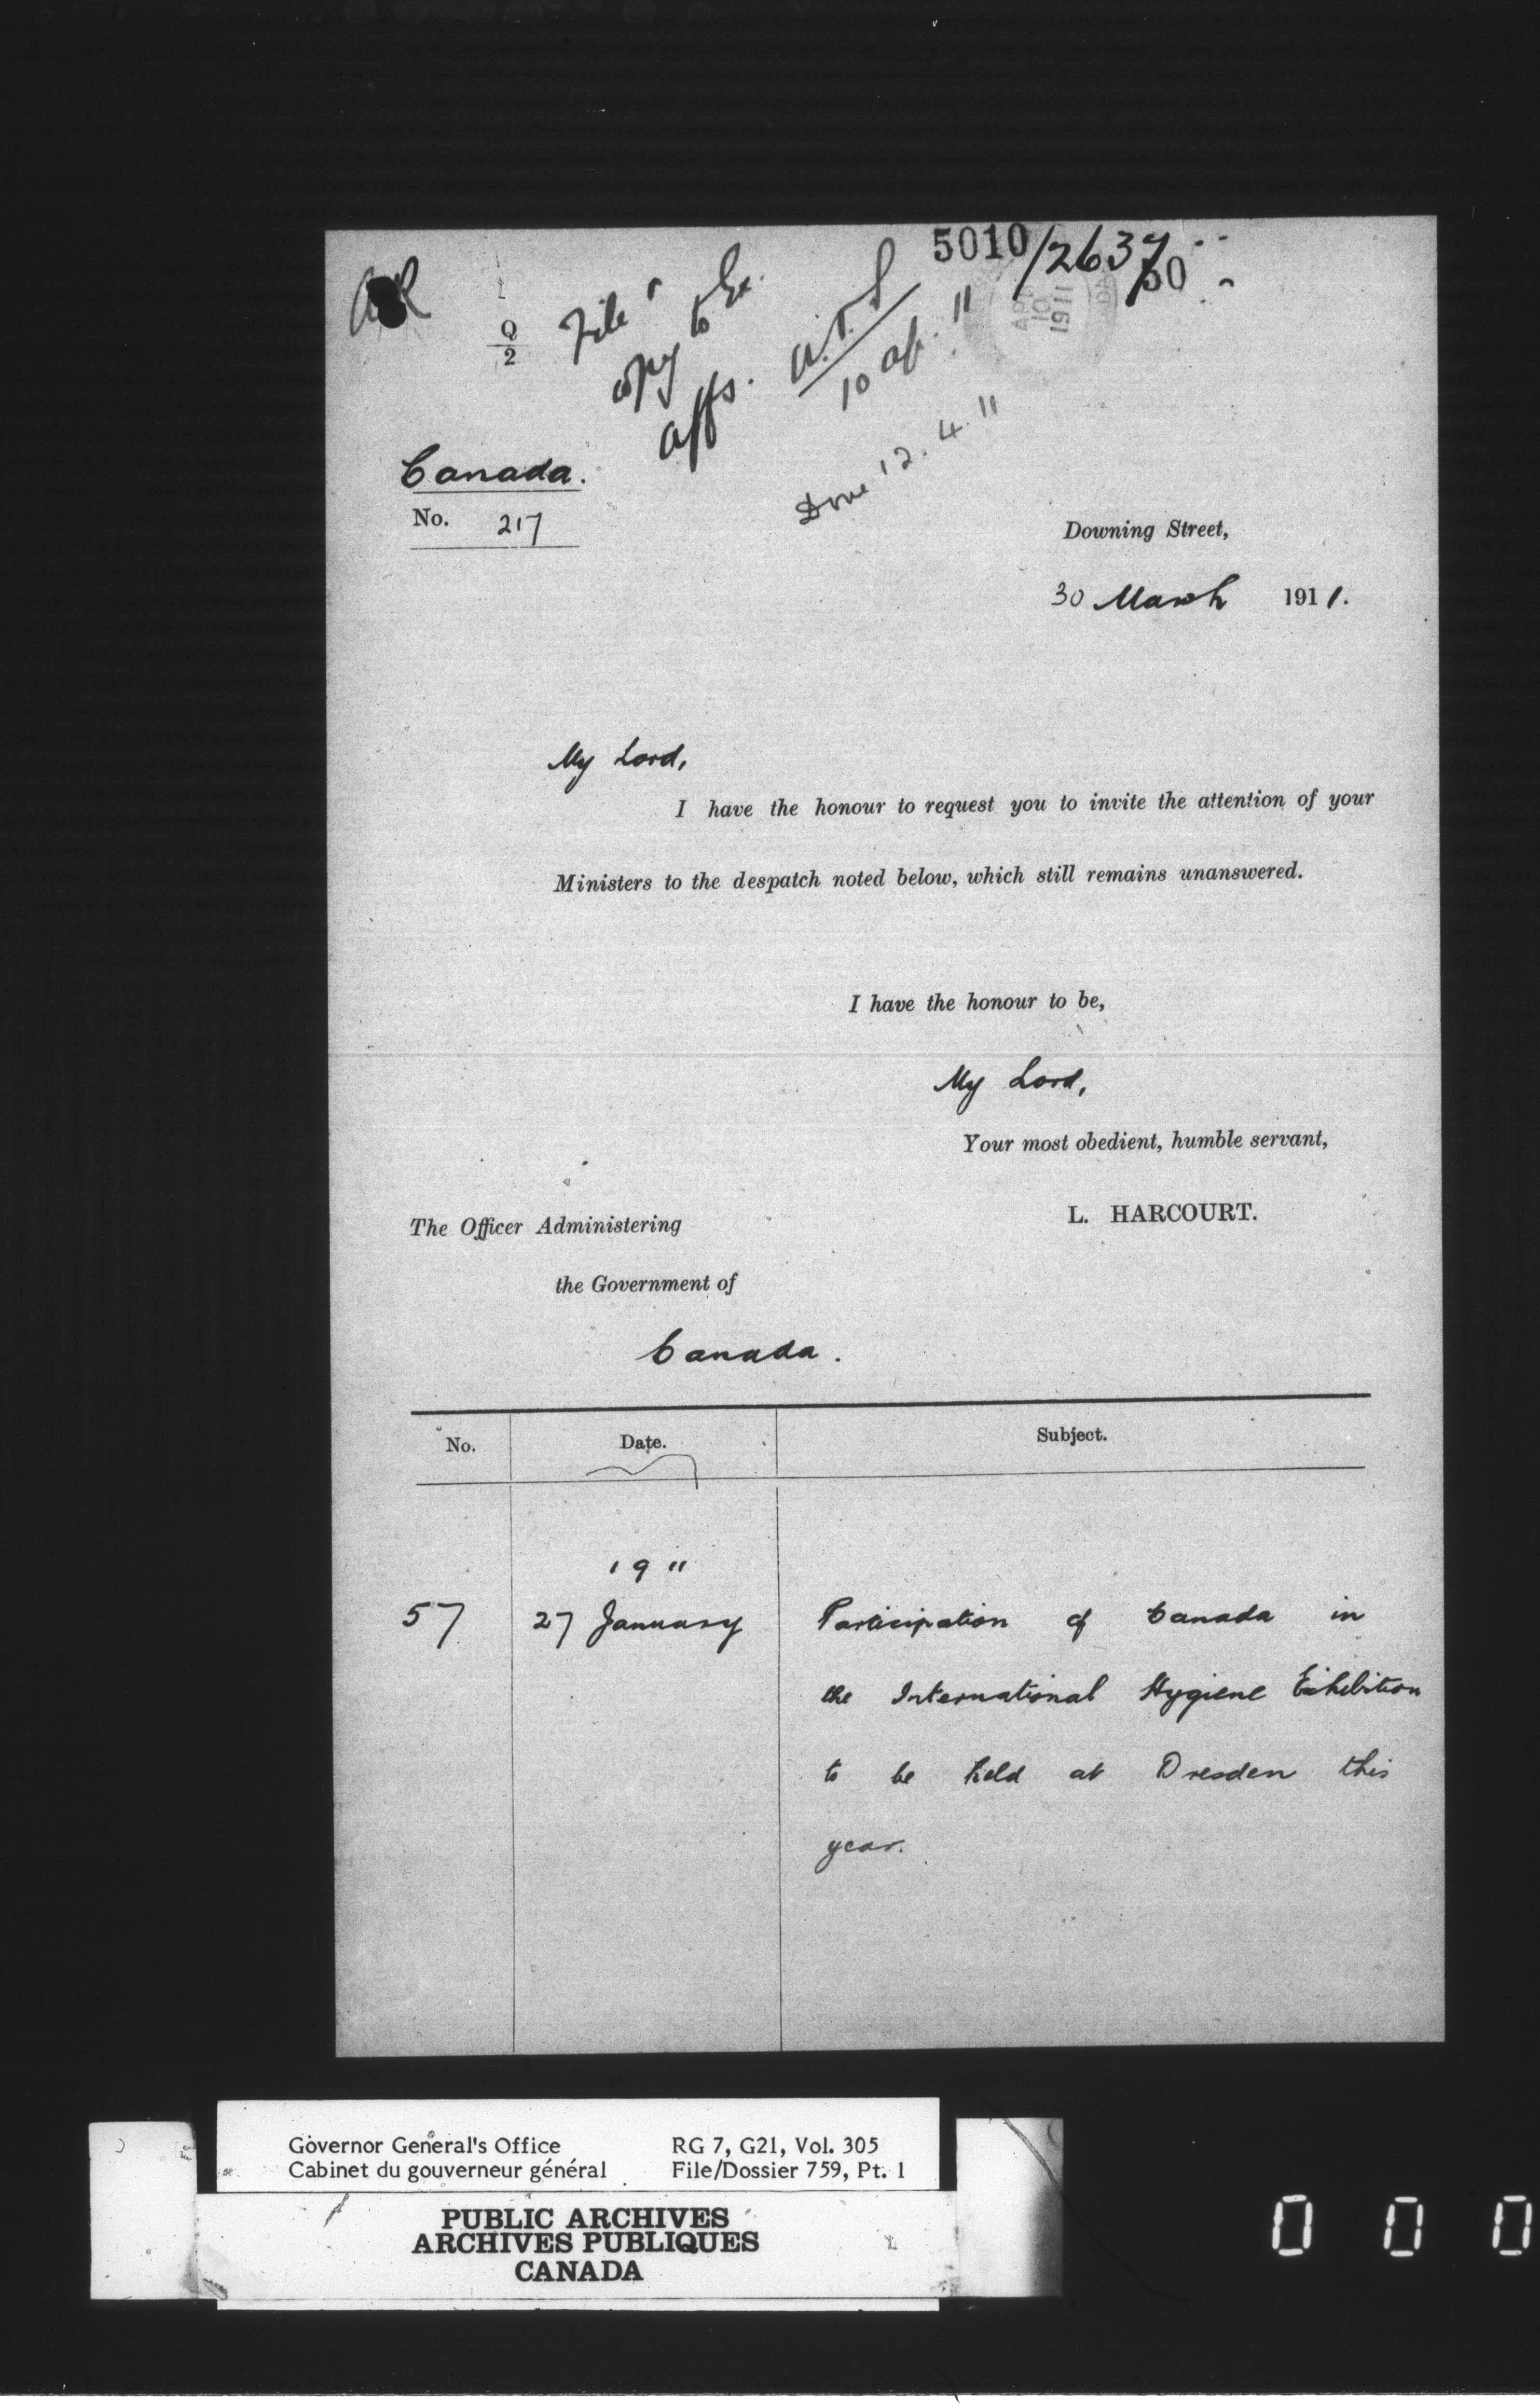 5010/2637
50
Q
2
File &
copy to Ex.
affs.
10 ap. 11
Done 12.4.11
APR
10
1911
Canada.
No. 217
Downing Street,
30 March 1911.
My Lord,
I have the honour to request you to invite the attention of your
Ministers to the despatch noted below, which still remains unanswered.
I have the honour to be,
My Lord,
Your most obedient, humble servant,
L. HARCOURT.
The Officer Administering
the Government of
Canada.
No. Date. Subject.
1911
57 27 January Participation of Canada in
the International Hygiene Exhibition
to be held at Dresden this
year.
Governor General's Office RG 7, G21, Vol. 305
Cabinet du gouverneur général File/Dossier 759, Pt. 1
PUBLIC ARCHIVES
ARCHIVES PUBLIQUES
CANADA
0 0 0